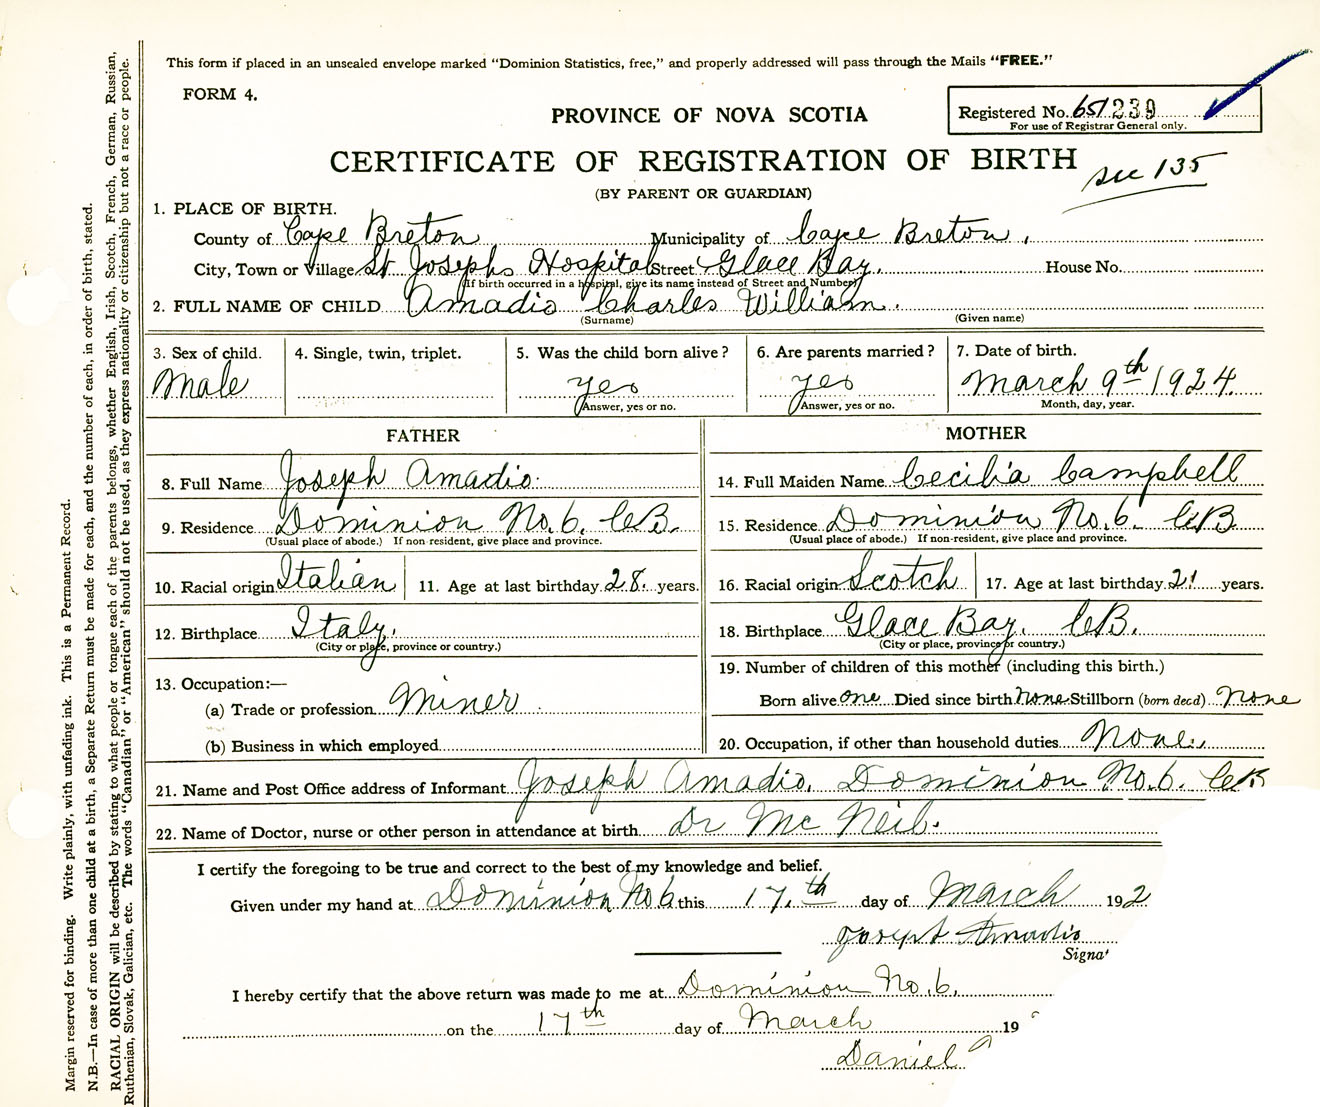 This form if placed in an unsealed envelope marked "Dominion Statistics, free," and properly addressed will pass through the Mails "FREE."
FORM 4.
PROVINCE OF NOVA SCOTIA
Registered No. 651239
For use of Registrar General only.
CERTIFICATE OF REGISTRATION OF BIRTH
see 135
(BY PARENT OR GUARDIAN)
1. PLACE OF BIRTH.
County of Cape Breton Municipality of Cape Breton.
City, Town or Village St Josephs Hospital Street Glace Bay. House No.
(If birth occurred in a hospital, give its name instead of Street and Number)
2. FULL NAME OF CHILD Amadio Charles William.
(Surname) (Given name)
3. Sex of child. 4. Single, twin, triplet. 5. Was the child born alive? 6. Are parents married? 7. Date of birth.
Male yes yes March 9th 1924.
Answer, yes or no. Answer, yes or no. Month, day, year.
FATHER MOTHER
8. Full Name Joseph Amadio. 14. Full Maiden Name Cecilia Campbell
9. Residence Dominion No. 6. C.B. 15. Residence Dominion No. 6. C.B.
(Usual place of abode.) If non-resident, give place and province. (Usual place of abode.) If non-resident, give place and province.
10. Racial origin Italian 11. Age at last birthday 28. years. 16. Racial origin Scotch 17. Age at last birthday 21 years.
12. Birthplace Italy. 18. Birthplace Glace Bay. C.B.
(City or place, province or country.) (City or place, province or country.)
13. Occupation:— 19. Number of children of this mother (including this birth.)
(a) Trade or profession Miner. Born alive one Died since birth none Stillborn (born decd) none
(b) Business in which employed 20. Occupation, if other than household duties None.
21. Name and Post Office address of Informant Joseph Amadio. Dominion No. 6. C.B
22. Name of Doctor, nurse or other person in attendance at birth Dr Mc Neil.
I certify the foregoing to be true and correct to the best of my knowledge and belief.
Given under my hand at Dominion No 6 this 17.th day of March 192
Joseph Amadio
Signa
I hereby certify that the above return was made to me at Dominion No. 6.
on the 17th day of March 19
Daniel
Margin reserved for binding. Write plainly, with unfading ink. This is a Permanent Record.
N.B.—In case of more than one child at a birth, a Separate Return must be made for each, and the number of each, in order of birth, stated.
RACIAL ORIGIN will be described by stating to what people or tongue each of the parents belongs, whether English, Irish, Scotch, French, German, Russian,
Ruthenian, Slovak, Galician, etc. The words "Canadian" or "American" should not be used, as they express nationality or citizenship but not a race or people.